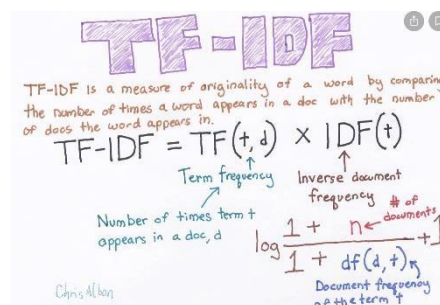 TF-IDF
TF-IDF is a measure of originality of a word by comparing
the number of times a word appears in a doc with the number
of docs the word appears in.
TF-IDF = TF(t, d) × IDF(t)
Term frequency
Inverse document
frequency
Number of times term t
appears in a doc, d
# of
documents
log 1 + n
1 + df(d, t) + 1
Document frequency
of the term t
Chris Albon